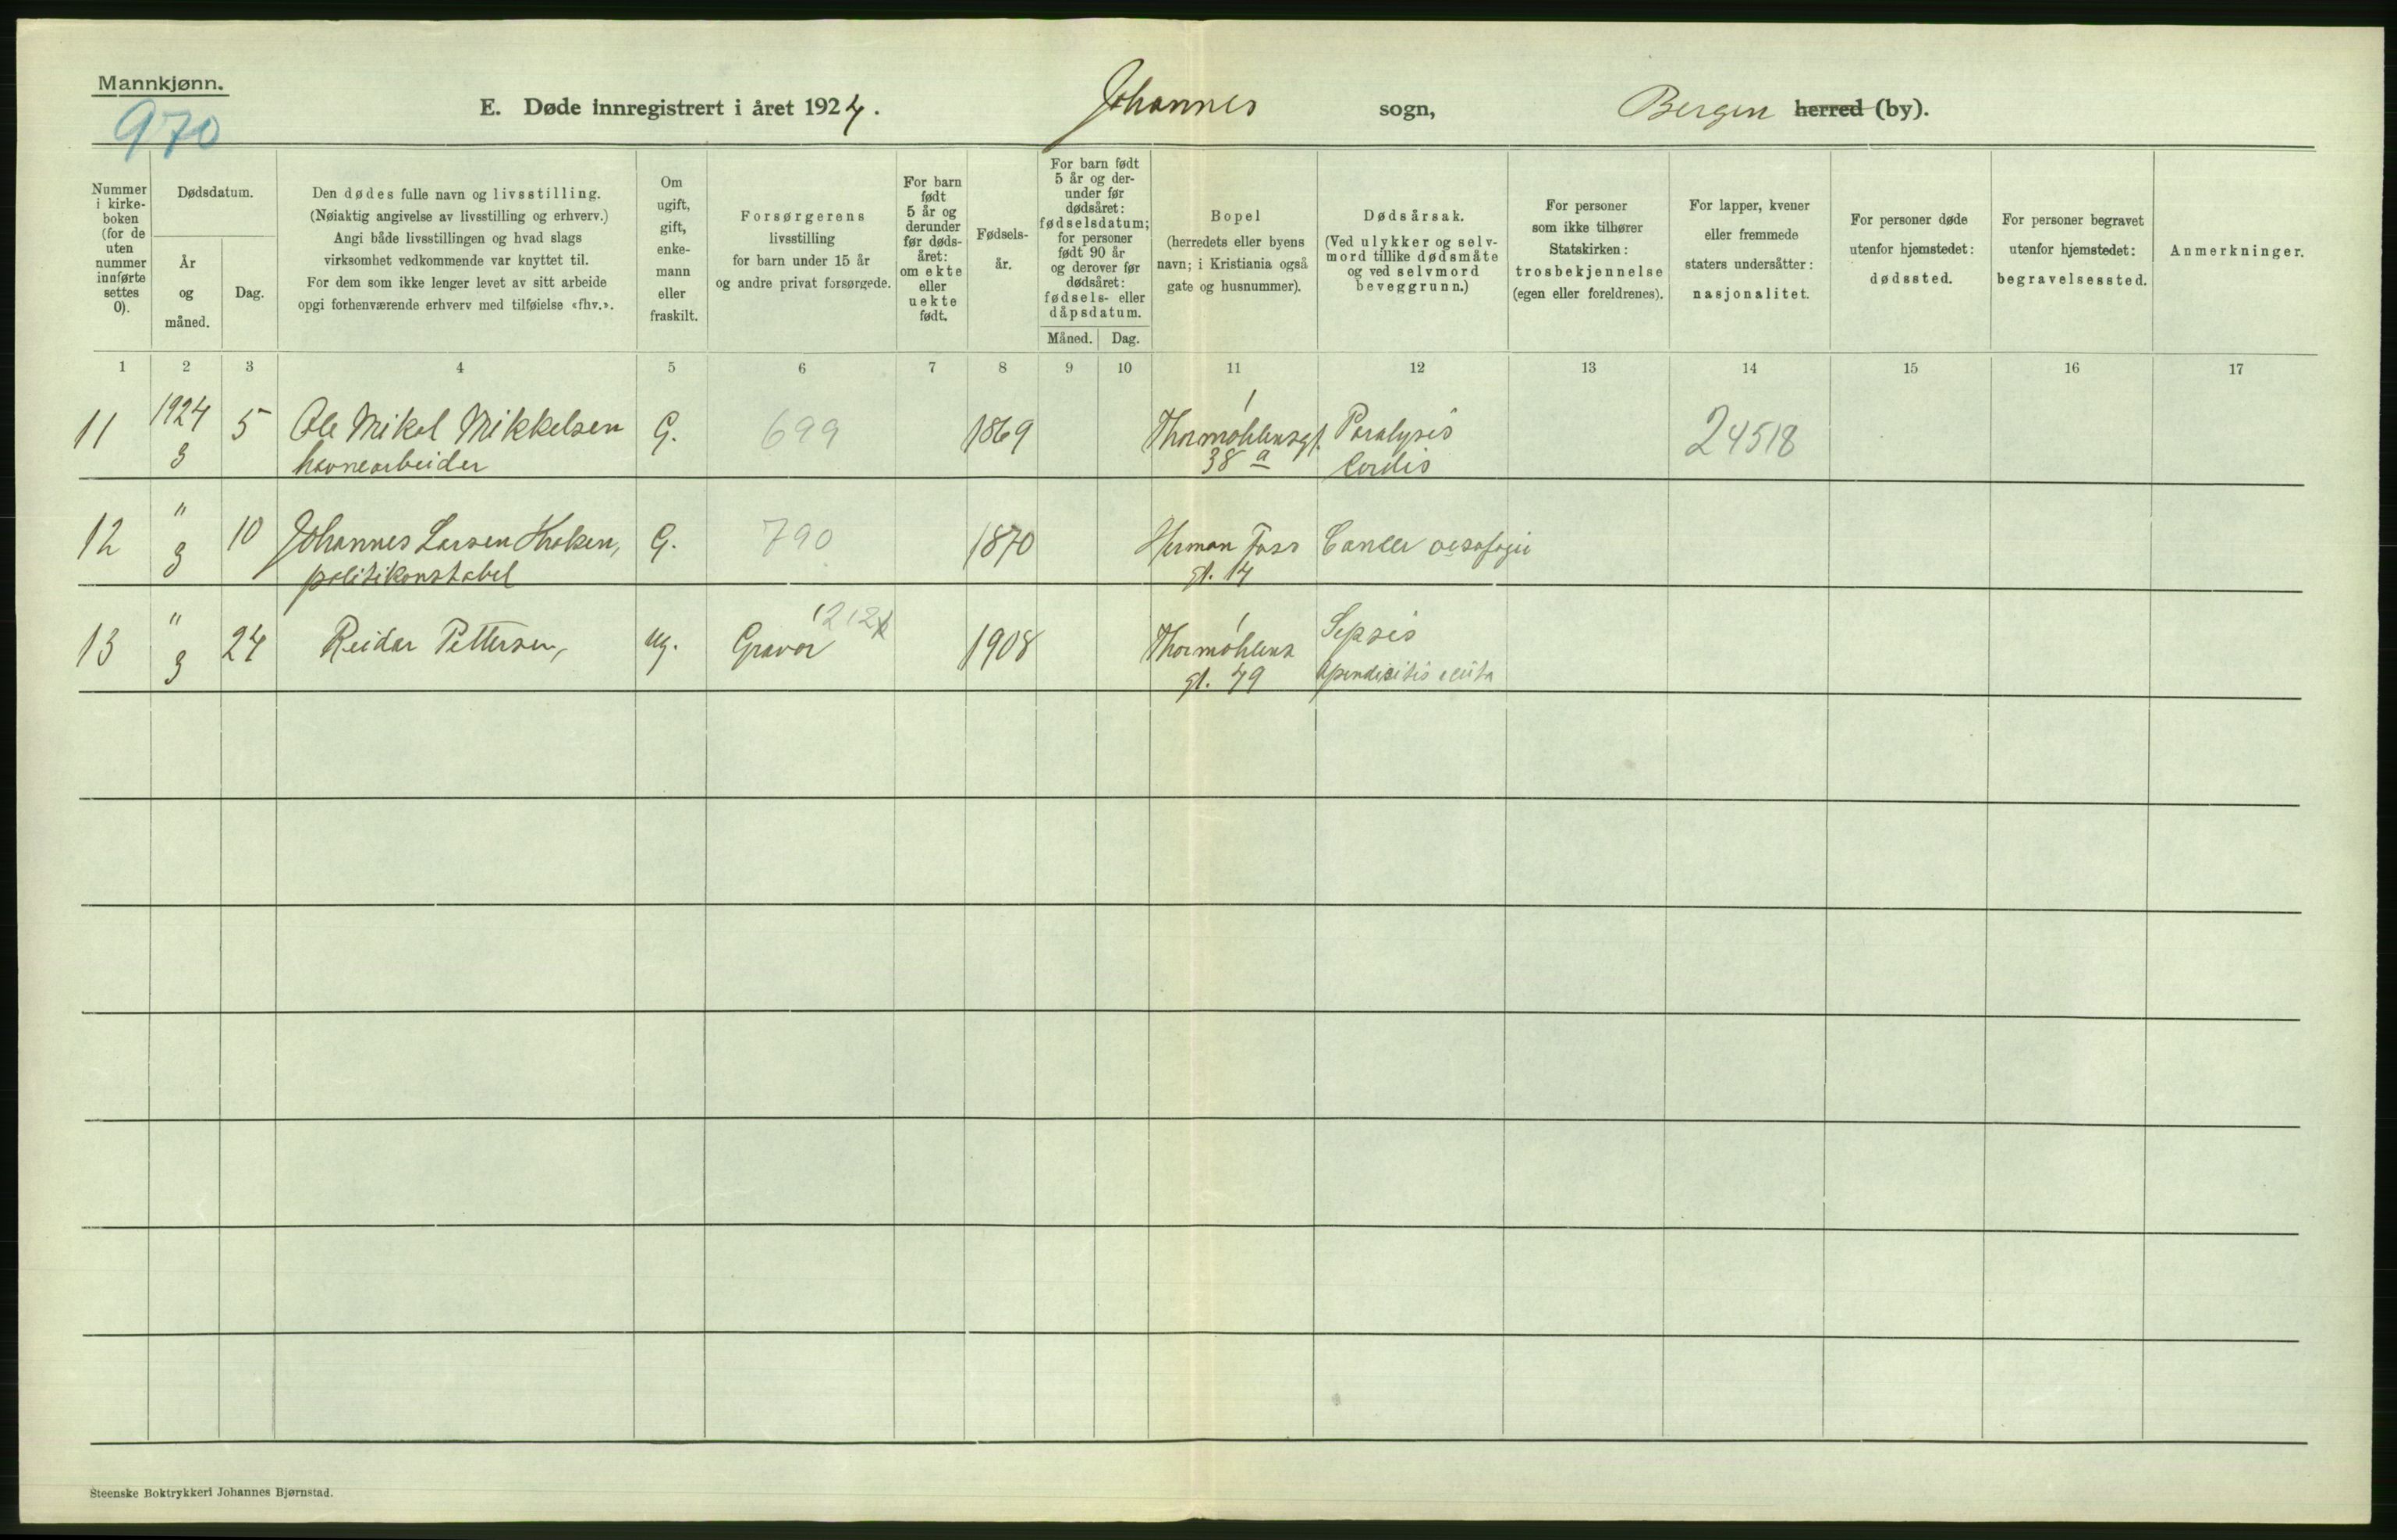 Mannkjønn.
970
E. Døde innregistrert i året 1924. Johannes sogn, Bergen herred (by).
Nummer i kirke-boken (for de uten nummer innførte settes 0).
Dødsdatum.
År og måned.
Dag.
Den dødes fulle navn og livsstilling.
(Nøiaktig angivelse av livsstilling og erhverv.)
Angi både livsstillingen og hvad slags
virksomhet vedkommende var knyttet til.
For dem som ikke lenger levet av sitt arbeide
opgi forhenværende erhverv med tilføielse «fhv.».
Om ugift, gift, enke-mann eller fraskilt.
Forsørgerens
livsstilling
for barn under 15 år
og andre privat forsørgede.
For barn født 5 år og derunder før døds-året: om ekte eller uekte født.
Fødsels-år.
For barn født 5 år og der-under før dødsåret: fødselsdatum; for personer født 90 år og derover før dødsåret: fødsels- eller dåpsdatum.
Måned. Dag.
Bopel
(herredets eller byens
navn; i Kristiania også
gate og husnummer).
Dødsårsak.
(Ved ulykker og selv-
mord tillike dødsmåte
og ved selvmord
beveggrunn.)
For personer
som ikke tilhører
Statskirken:
trosbekjennelse
(egen eller foreldrenes).
For lapper, kvener
eller fremmede
staters undersåtter:
nasjonalitet.
For personer døde
utenfor hjemstedet:
dødssted.
For personer begravet
utenfor hjemstedet:
begravelsessted.
Anmerkninger.
1 2 3 4 5 6 7 8 9 10 11 12 13 14 15 16 17
11 1924 3 5 Ole Mikal Mikkelsen G. 699 1869 Thormøhlensgt. Paralysis 24518
havnearbeider 38 a Cordis
12 " 3 10 Johannes Larsen Kroken, G. 790 1870 Herman Foss Cancer oesofagii
politikonstabel gt. 14
13 " 3 24 Reidar Pettersen, ug. Gravør 1908 Thormøhlens Sepsis
gt. 49 Apendisitis acuta
Steenske Boktrykkeri Johannes Bjørnstad.